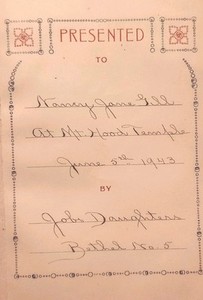 PRESENTED
TO
Nancy Jane Gill
At Mt. Hood Temple
June 5th 1943
BY
Jobs Daughters
Bethel No. 5